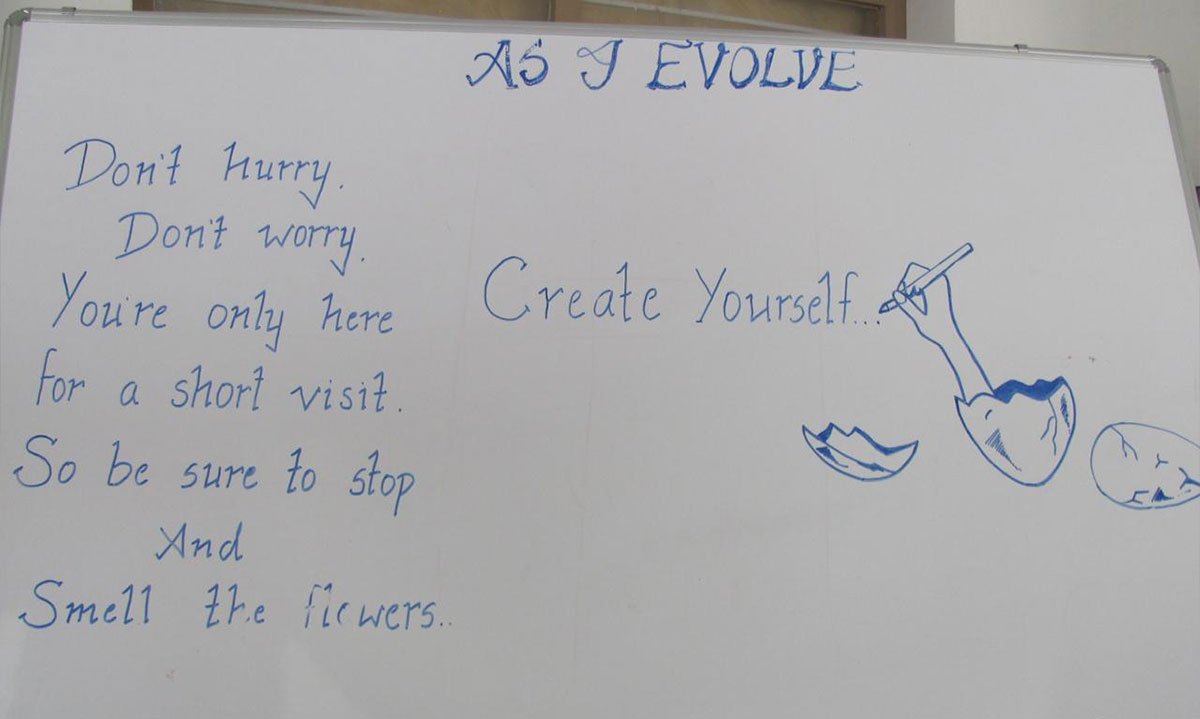 AS I EVOLVE
Don't hurry.
Don't worry.
You're only here
for a short visit.
So be sure to stop
And
Smell the flowers..
Create Yourself...